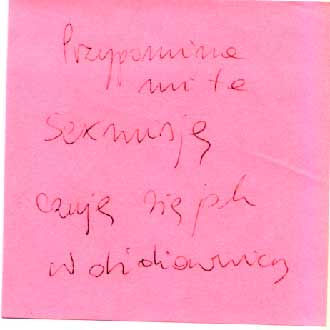 Przypomina
mi te
Sexmisję
czuję się jak
w didiawnicy